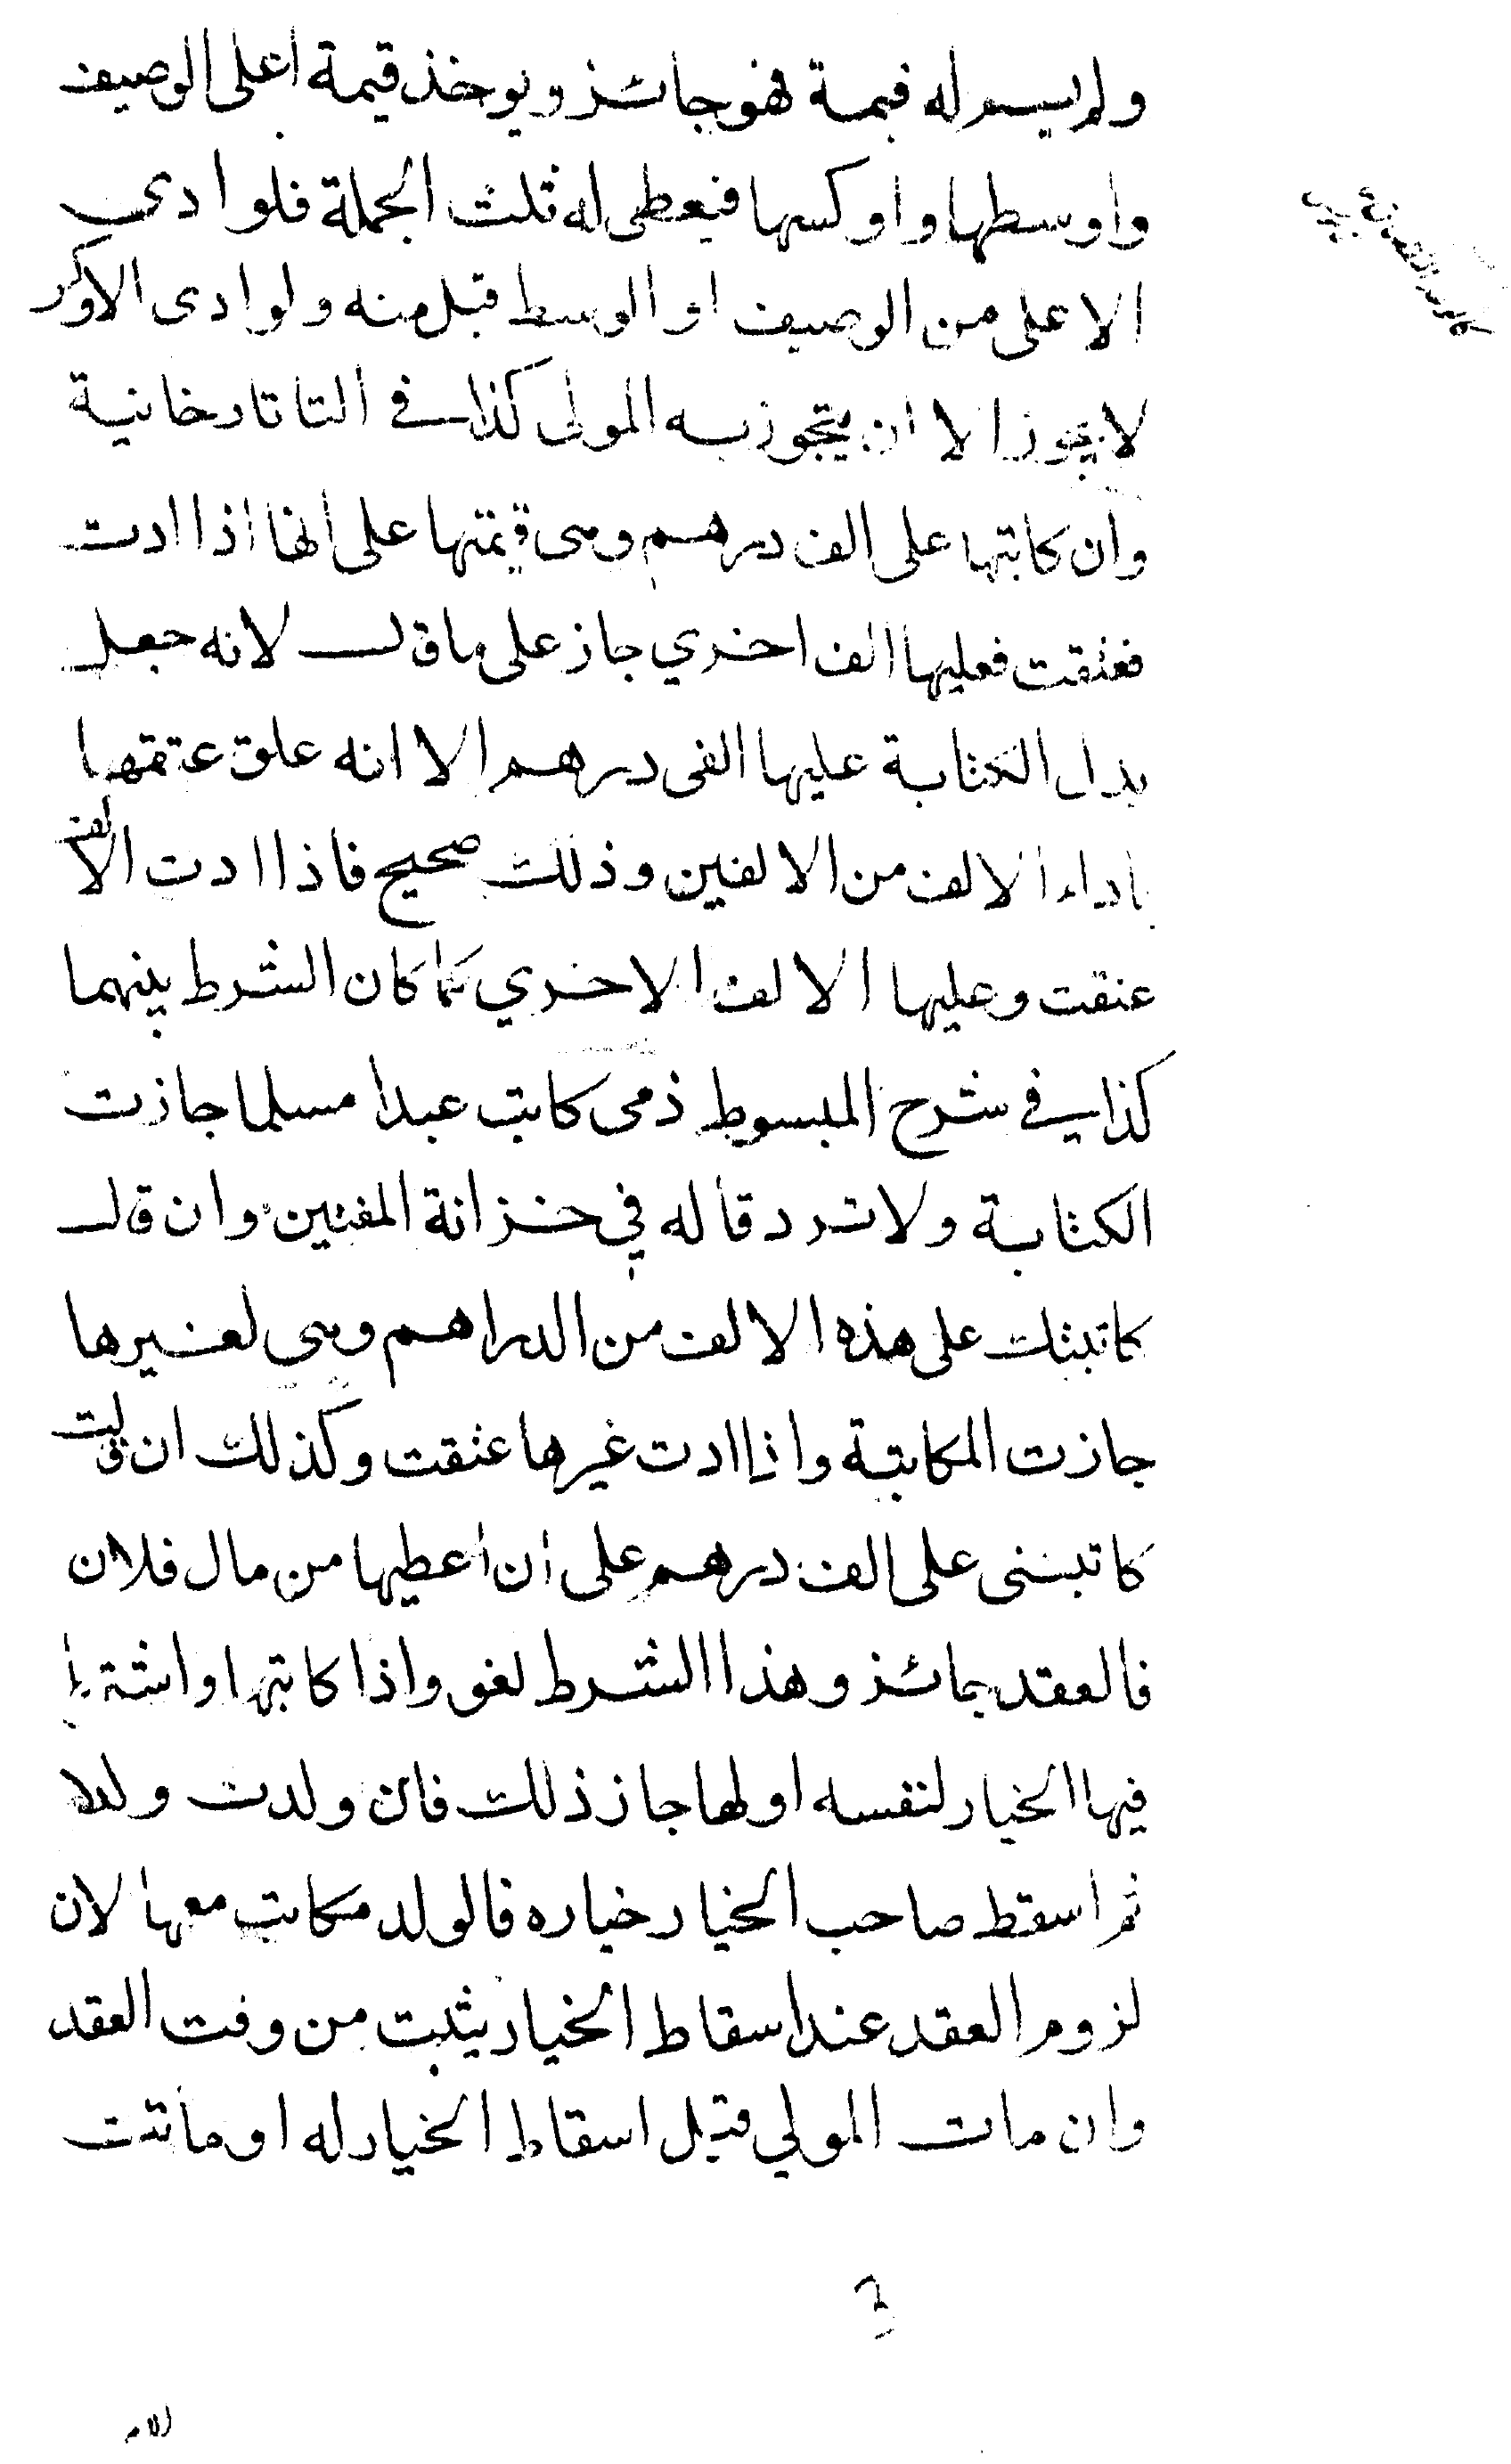 ولم يسم له قيمة فهو جائز ويوخذ قيمة اعلى الوصيف
واوسطها واوكسها فيعطى له ثلث الجملة فلو ادى
الاعلى من الوصيف او الوسط قبل منه ولو ادى الاوكس
لا يجوز الا ان يتجوز به المولى كذا في التاتارخانية
وان كاتبها على الف درهم وهى قيمتها على انها اذا ادت
فعتقت فعليها الف اخري جاز على ما قال لانه جعل
بدل الكتابة عليها الفى درهم الا انه علق عتقها
باداء الالف من الالفين وذلك صحيح فاذا ادت الالف
عتقت وعليها الالف الاخري كما كان الشرط بينهما
كذا في شرح المبسوط ذمى كاتب عبدا مسلما جازت
الكتابة ولا ترد قاله في خزانة المفتين وان قال
كاتبتك على هذه الالف من الدراهم وهى لغيرها
جازت المكاتبة واذا ادت غيرها عتقت وكذلك ان قالت
كاتبنى على الف درهم على ان اعطيها من مال فلان
فالعقد جائز وهذا الشرط لغو واذا كاتبها واشترط
فيها الخيار لنفسه او لها جاز ذلك فان ولدت ولدا
ثم اسقط صاحب الخيار خياره فالولد مكاتب معها لان
لزوم العقد عند اسقاط الخيار يثبت من وقت العقد
وان مات المولي قبل اسقاط الخيار له او ماتت
الام